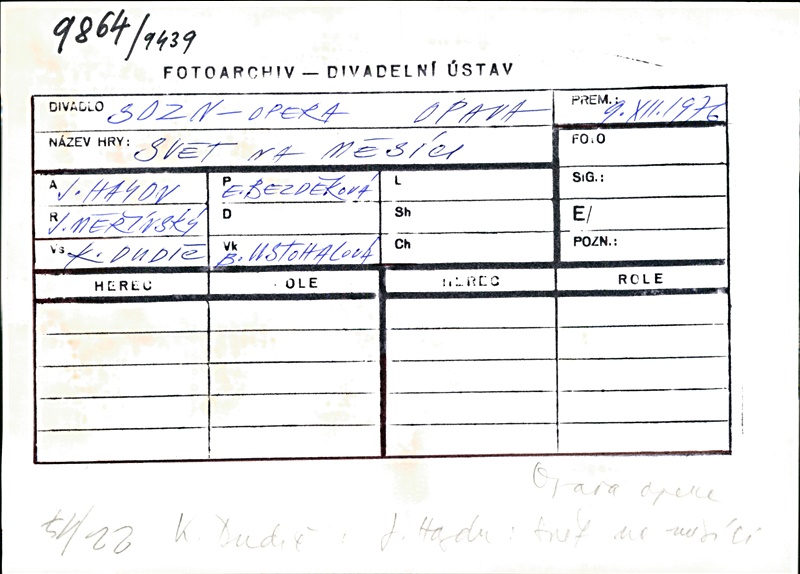 9864/9439
FOTOARCHIV — DIVADELNÍ ÚSTAV
DIVADLO SDZN - OPERA OPAVA PREM.: 9. XII. 1976
NÁZEV HRY: SVĚT NA MĚSÍCI FO.O
A J. HAYDN P E. BEZDĚKOVÁ L SIG.:
R J. MĚŘÍNSKÝ D Sh E/
Vs K. DUDIČ Vk B. USTOHALOVÁ Ch POZN.:
HEREC OLE HEREC ROLE
Opava opera
K. Dudič : J. Haydn : Svět na měsíci